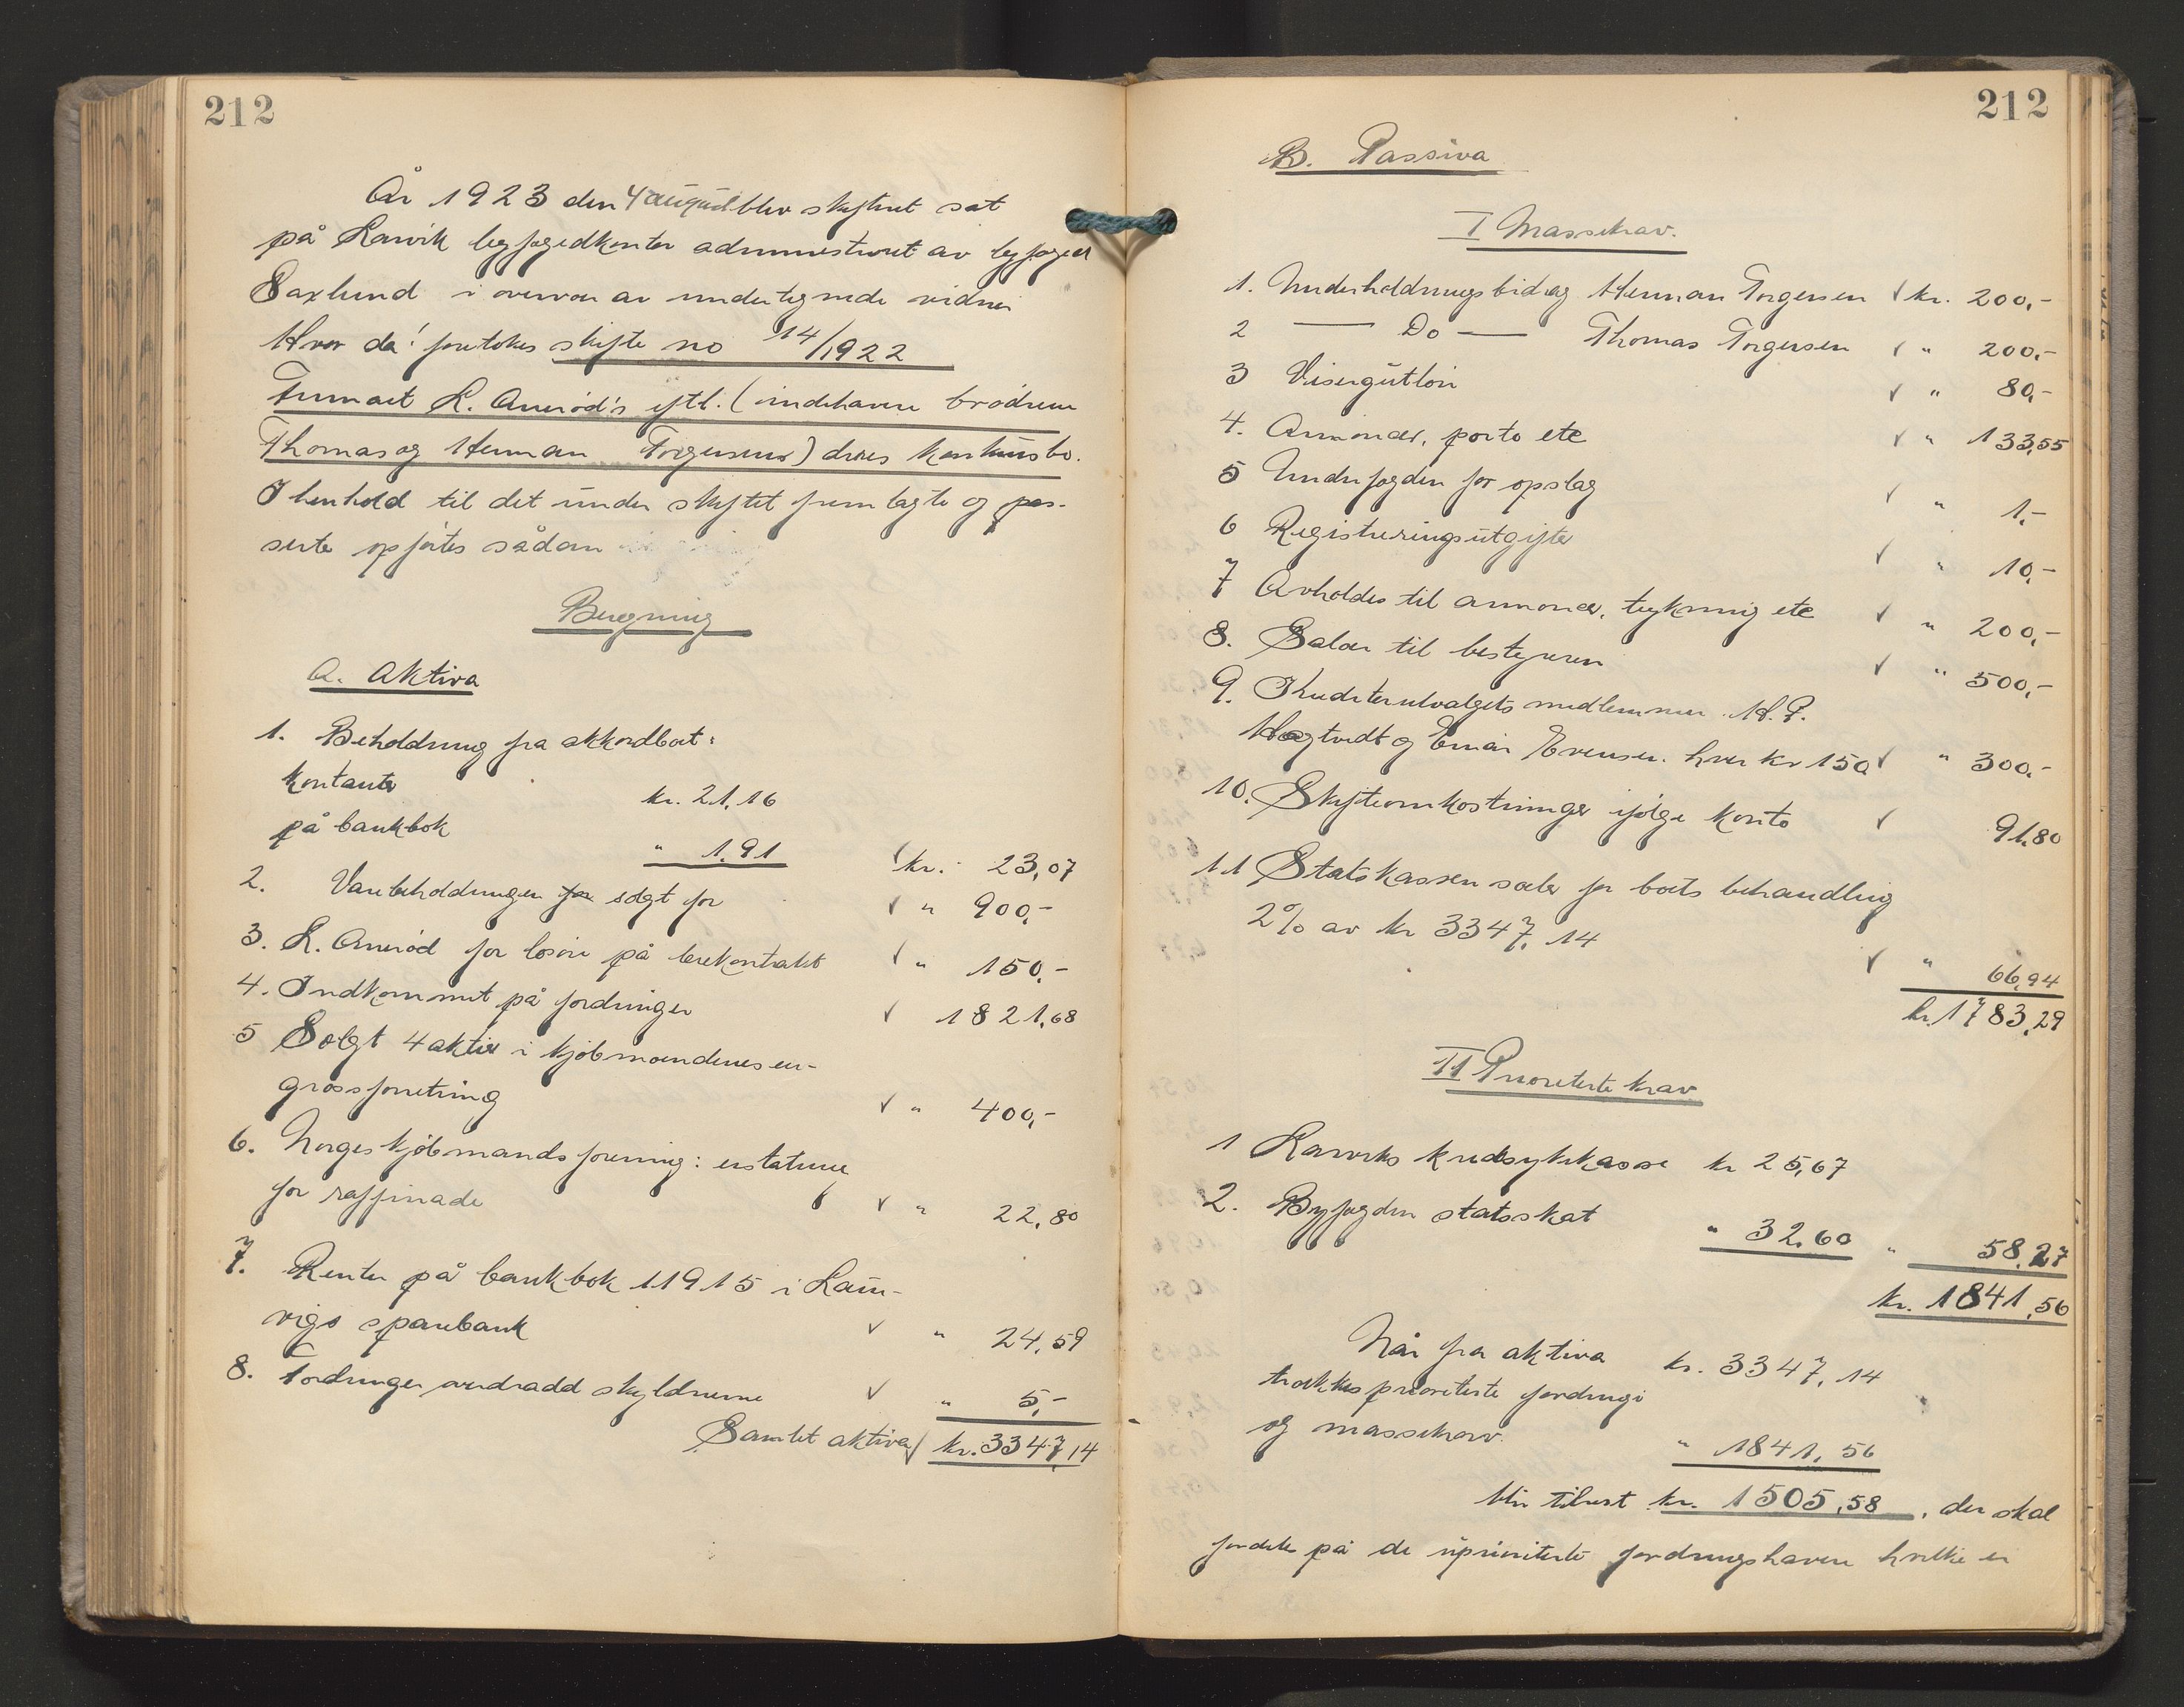 212
År 1923 den 4 august blev skifteret sat
på Larvik byfogedkontor administreret av byfoged
Saxlund i overvær av undertegnede vidner
Hvor da: foretokes skifte no 14/1922
Firmaet L. Amrød's eftf. (indehavere brødrene
Thomas og Herman Torgersens) deres konkursbo.
I henhold til det under skiftet fremlagte og pas-
serte opførtes sådan
Beregning
A. Aktiva
1. Beholdning fra akkordboet:
kontanter kr. 21,16
på bankbok " 1,91 kr. 23,07
2. Varebeholdningen for solgt for " 900,-
3. L. Amrød for løsøre på leiekontrakt " 150,-
4. Indkommet på fordringer 1821,68
5 Solgt 4 aktier i kjøbmændenes en-
grossforretning " 400,-
6. Norges kjøbmandsforening: erstatning
for raffinade " 22,80
7. Renter på bankbok 11915 i Laur-
vigs sparebank " 24,59
8. Fordringer skyldnerne " 5,-
Samlet aktiva kr. 3347,14
212
B. Passiva
I Massekrav.
1. Underholdningsbidrag Herman Torgersen kr. 200,-
2 — Do — Thomas Torgersen " 200,-
3 Visergutløn " 80,-
4. Annoncer, porto etc " 133,55
5 Underfogden for opslag " 1,-
6 Registreringsutgifter " 10,-
7 Avholdes til annoncer, trykning etc " 200,-
8. Salær til bestyreren " 500,-
9. Kreditorutvalgets medlemmer H. P.
Hægtvedt og Einar Evensen. hver kr 150 " 300,-
10. Skifteomkostninger ifølge konto 91,80
11 Statskassen salær for boets behandling
2% av kr 3347,14 " 66,94
kr. 1783,29
II Prioriterte krav
1 Larviks kredssykekasse kr 25,67
2. Byfogden statsskat " 32,60 " 58,27
kr. 1841,56
Når fra aktiva kr. 3347,14
trækkes prioriterte fordringer
og massekrav. " 1841,56
blir tilrest kr. 1505,58, der skal
fordeles på de uprioriterte fordringshavere hvilke er